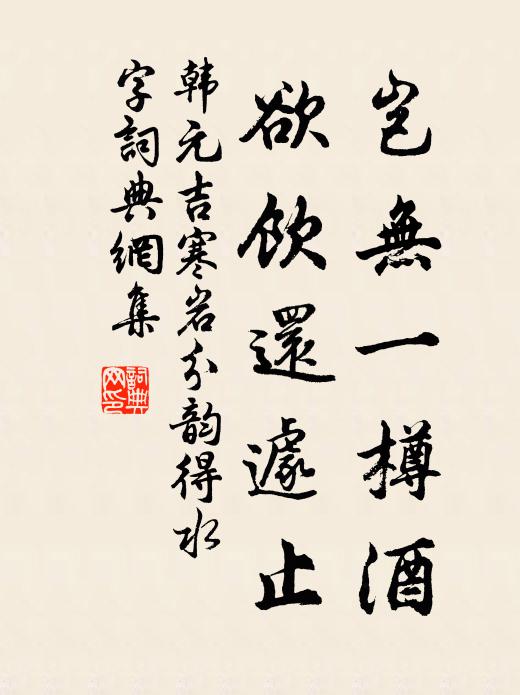 岂無一樽酒
欲飲還遽止
韩元吉寒岩分韵得水
字詞典網集
詞典
网印